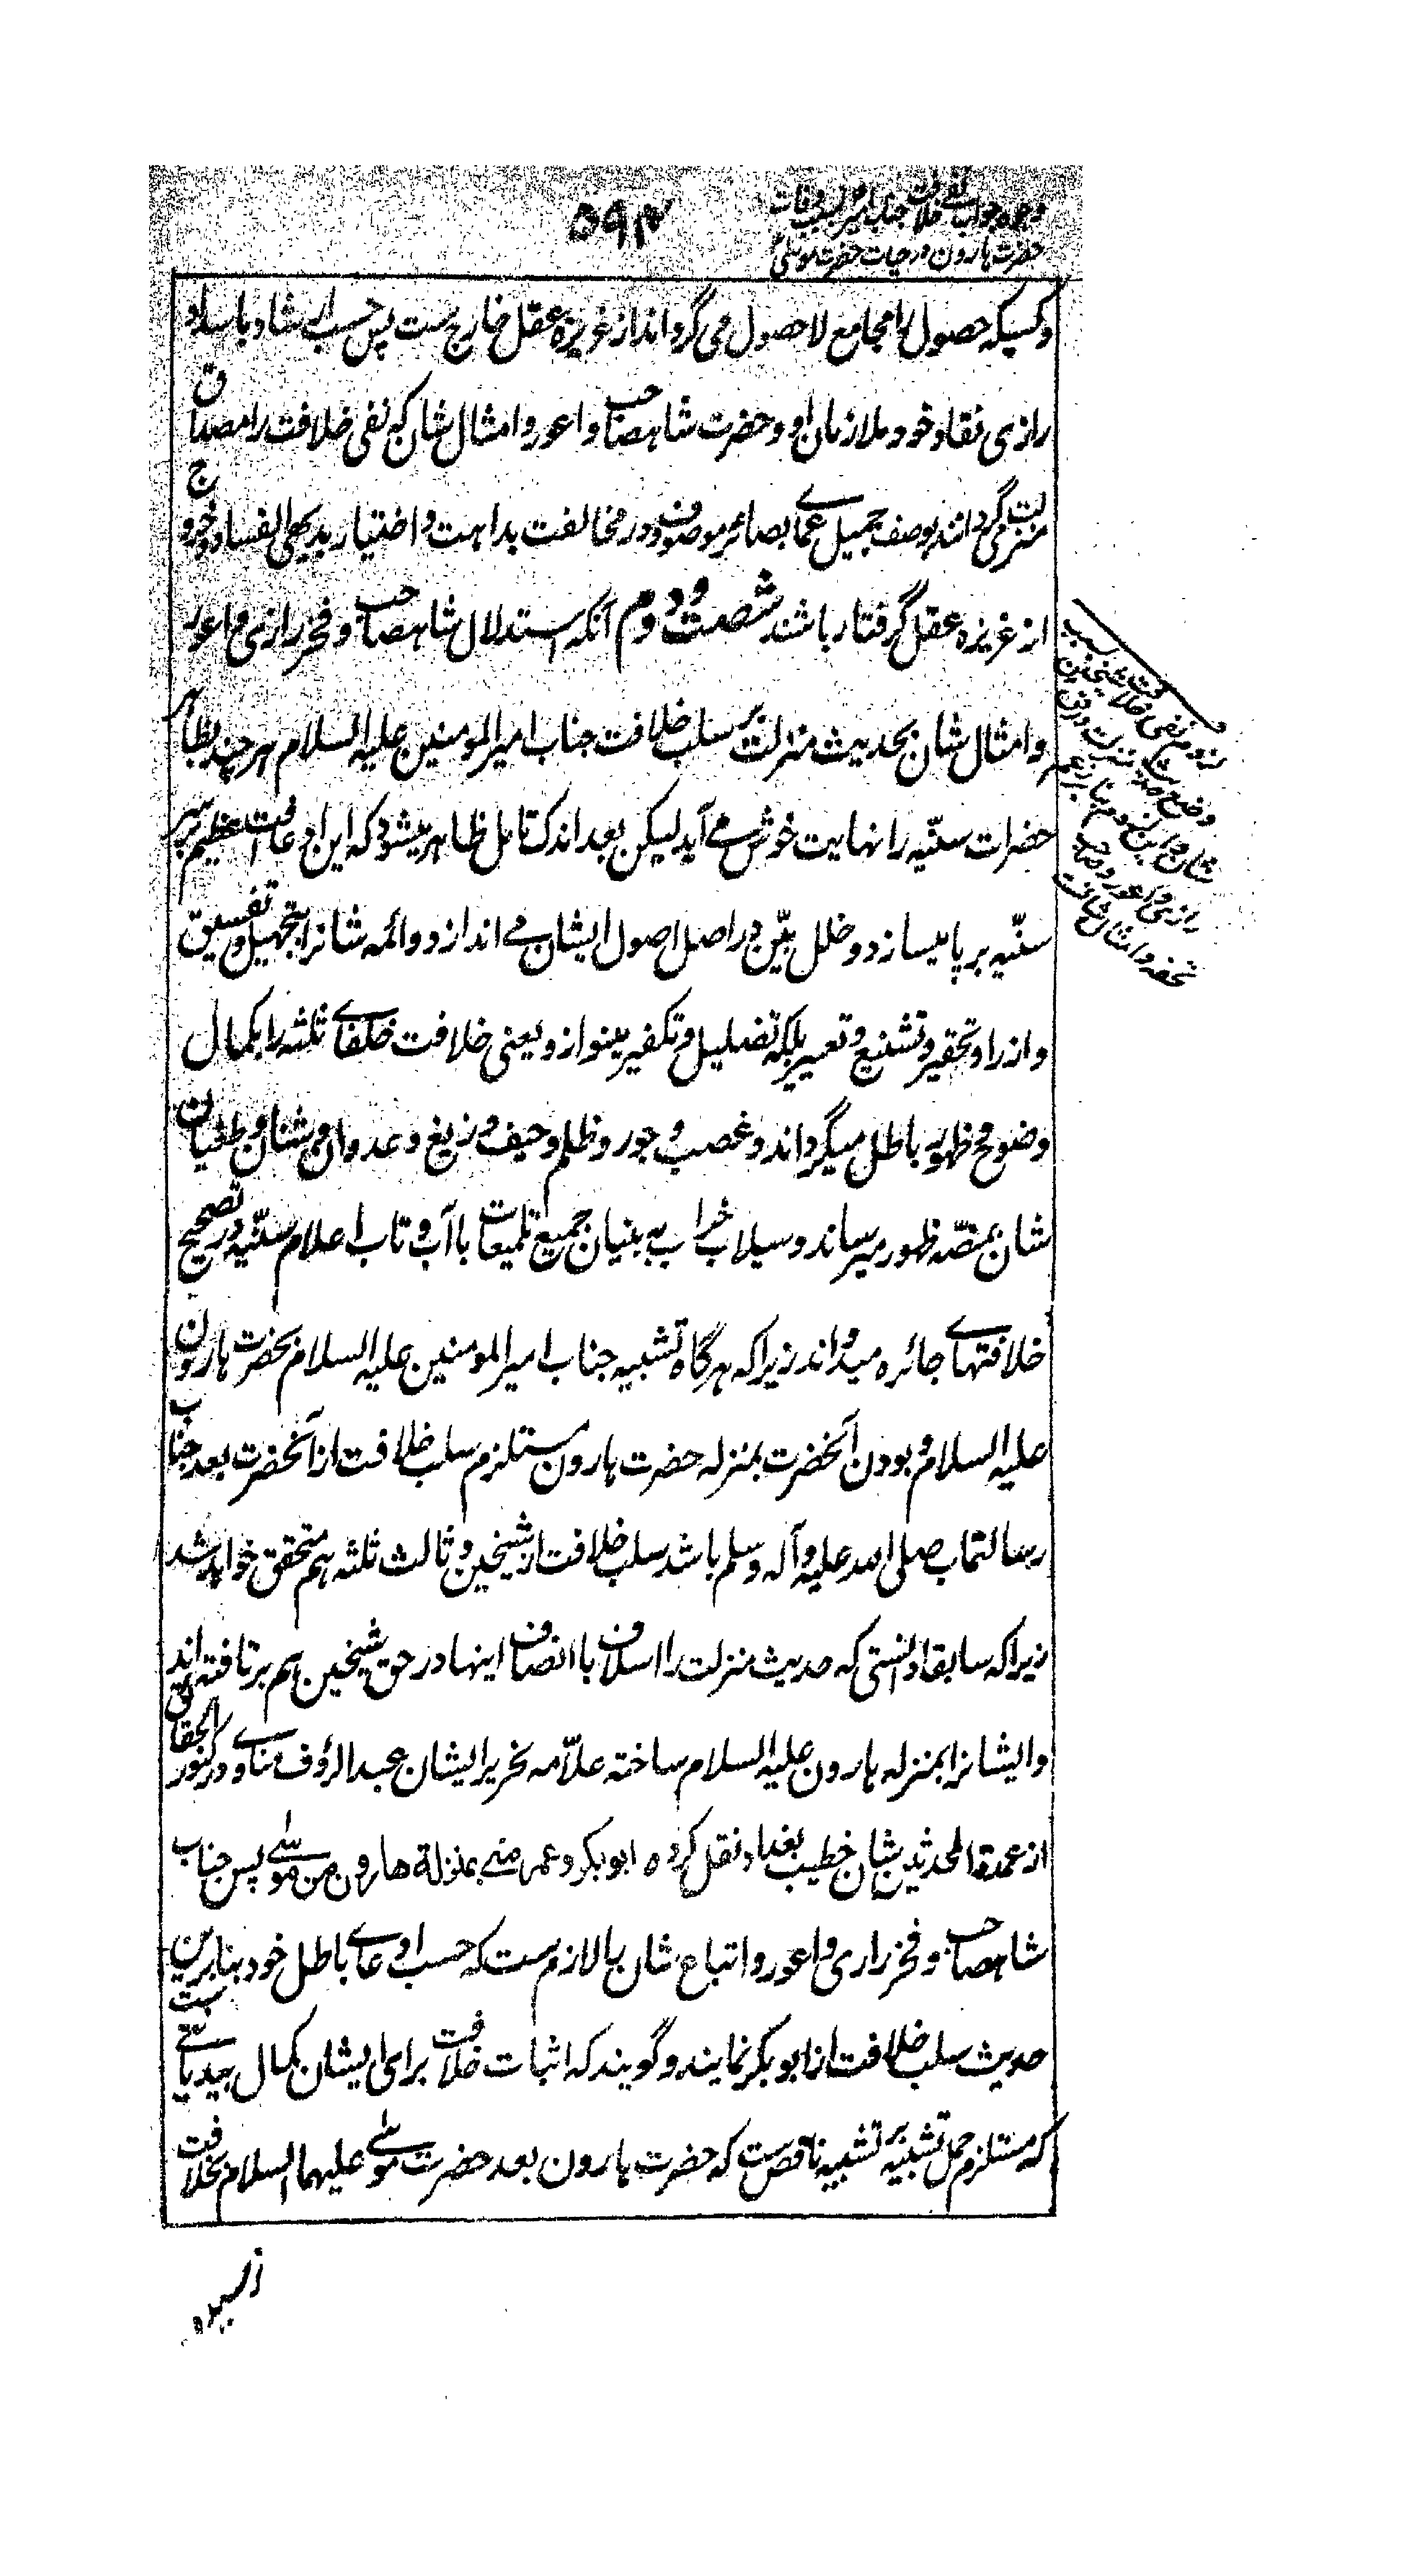 وجوه جواب نفی خلافت جناب امیر بسبب وفات
حضرت هارون در حیات حضرت موسی
۵۹۴
و کسیکه حصول را مجامع لا حصول می گرداند از غریزه عقل خارج ست پس حسب ارشاد باسداد
رازی نقاد خود ملازمان او و حضرت شاهصاحب و اعور و امثال شان که نفی خلافت را مصداق
منزلت می گردانند بوصف جمیل عمای بصائر موصوف و در مخالفت بداهت و اختیار بدیهی الفساد و خروج
از غریزه عقل گرفتار باشند شصت و دوم آنکه استدلال شاهصاحب و فخر رازی و اعور
و امثال شان بحدیث منزلت بر سلب خلافت جناب امیرالمومنین علیه السلام هر چند بظاهر
حضرات سنّیه را نهایت خوش می آید لیکن بعد اندک تامل ظاهر میشود که این ادعا آفت عظیم بر سر
سنّیه بر پا میسازد و خلل بیّن در اصل اصول ایشان می اندازد و ائمه شانرا بتجهیل و تفسیق
و ازرا و تحقیر و تشنیع و تعییر بلکه تضلیل و تکفیر مینوازد یعنی خلافت خلفای ثلثه را بکمال
وضوح و ظهور باطل میگرداند و غصب و جور و ظلم و حیف و زیغ و عدوان و شنان و طغیان
شان بمنصّه ظهور میرساند و سیلاب خراب به بنیان جمیع تلمیعات با آب و تاب اعلام سنّیه در تصحیح
خلافتهای جائره میدواند زیرا که هرگاه تشبیه جناب امیرالمومنین علیه السلام بحضرت هارون
علیه السلام و بودن آنحضرت بمنزله حضرت هارون مستلزم سلب خلافت از آنحضرت بعد جناب
رسالتماب صلی الله علیه و آله و سلم باشد سلب خلافت از شیخین و ثالث ثلثه هم متحقق خواهد شد
زیرا که سابقا دانستی که حدیث منزلت را اسلاف با انصاف اینها در حق شیخین هم برتافته اند
و ایشانرا بمنزله هارون علیه السلام ساخته علّامه نحریر ایشان عبدالرؤف مناوی در کنوز الحقائق
از عمدة المحدثین شان خطیب بغداد نقل کرده ابو بکر و عمر منی بمنزلة هارون من موسی پس جناب
شاهصاحب و فخر رازی و اعور و اتباع شان را لازم ست که حسب ادعای باطل خود بنابرین
حدیث سلب خلافت از ابو بکر نمایند و گویند که اثبات خلافت برای ایشان بکمال بیدیانتی ست
که مستلزم حمل تشبیه بر تشبیه ناقص ست که حضرت هارون بعد حضرت موسی علیهما السلام بخلافت
لزوم نفی خلافت شیخین بسبب
رازی و اعور و صاحب
تحفه و امثال شان